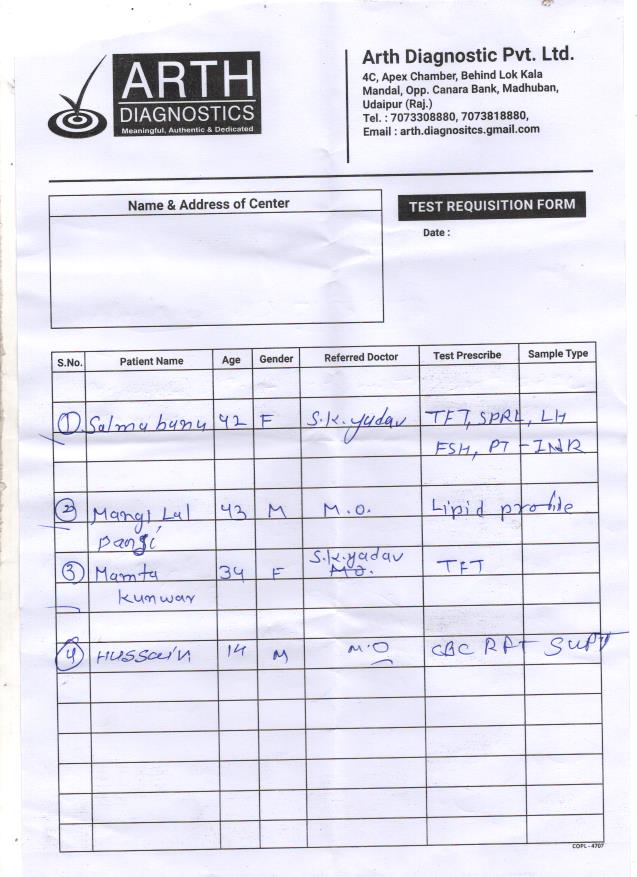 ARTH
DIAGNOSTICS
Meaningful, Authentic & Dedicated
Arth Diagnostic Pvt. Ltd.
4C, Apex Chamber, Behind Lok Kala
Mandal, Opp. Canara Bank, Madhuban,
Udaipur (Raj.)
Tel. : 7073308880, 7073818880,
Email : arth.diagnositcs.gmail.com
Name & Address of Center
TEST REQUISITION FORM
Date :
S.No. Patient Name Age Gender Referred Doctor Test Prescribe Sample Type
1 Salma banu 42 F S.K. yadav TFT, SPRL, LH
FSH, PT - INR
2 Mangi Lal 43 M M.O. Lipid profile
3 Mamta 34 F S.K. yadav TFT
M.O.
Kunwar
4 HUSSain 14 M M.O CBC
COPL - 4707